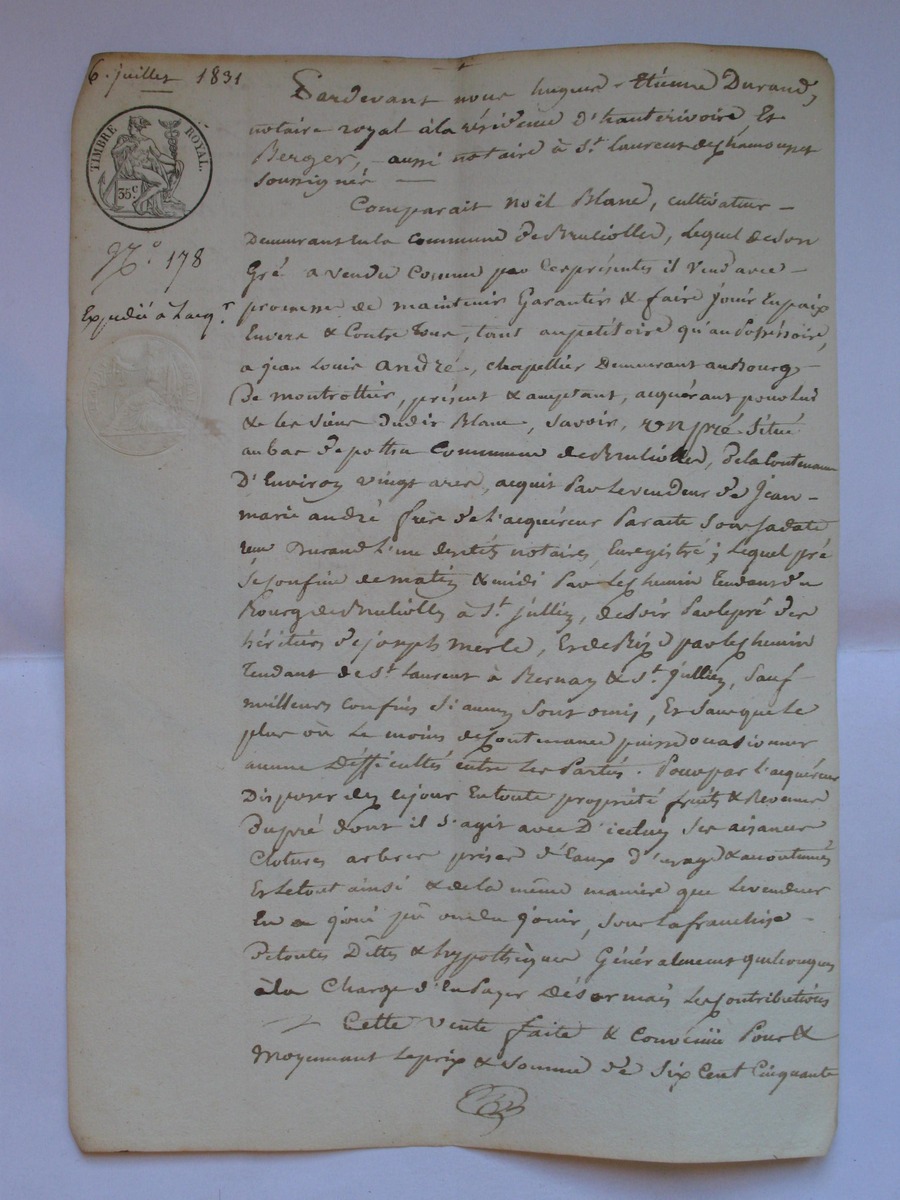 6. juillet 1831
TIMBRE ROYAL.
35 c.
N.o 178
Expédié à l'acq.r
Pardevant nous hugues-Etienne Durand,
notaire royal à la résidence d'hauterivoire Et
Berger, - aussi notaire à St. laurent de chamousset
soussignés —
Comparait noël Blanc, cultivateur -
Demeurant En la Commune de Brulioller, Lequel de son
Gré a vendu Comme par Ces présentes il Vend avec -
promesse de maintenir Garantir & faire jouir En paix
Envers & Contre Tous, tant au pétitoire qu'au Possessoire,
a jean Louis andré, chapellier Demeurant au Bourg -
de montrottier, présent & acceptant, acquérant pour lui
& les siens dudit Blanc, Savoir, un pré situé
au bas de Commune de Brulioller, de la Contenance
D'Environ vingt ares, acquit Par le vendeur de Jean -
marie andré frère de l'acquéreur Par acte sous sa date
reçu Durand L'un desdits notaires, Enregistré ; Lequel pré
Se confine de matin & midi Par le chemin Tendant du
Bourg de Brulioller à St. jullien, de soir Par le pré des
héritiers de joseph merle, Et de Bize par le chemin
Tendant de St. Laurent à Bernay & St. jullien, Sauf -
meilleurs confins Si aucuns sont omis, Et sans que le
plus où Le moins de Contenance puisse occasionner
aucune Difficultés entre Les Parties. Pour par l'acquéreur
Disposer dès ce jour En toute propriété fruits & Revenus
Du pré dont il s'agit avec D'icelui Ses aisances
Clotures arbres prises d'Eaux d'usage & accoutumés
Et le tout ainsi & de la même manière que le vendeur
En a joui pû ou dû jouir, sous la franchise -
De toutes Dettes & hypothèques Généralement quelconques
à la Charge d'En Payer Désormais Les Contributions
Cette Vente faite & Convenüe Pour &
Moyennant Le prix & Somme de Six Cent Cinquante